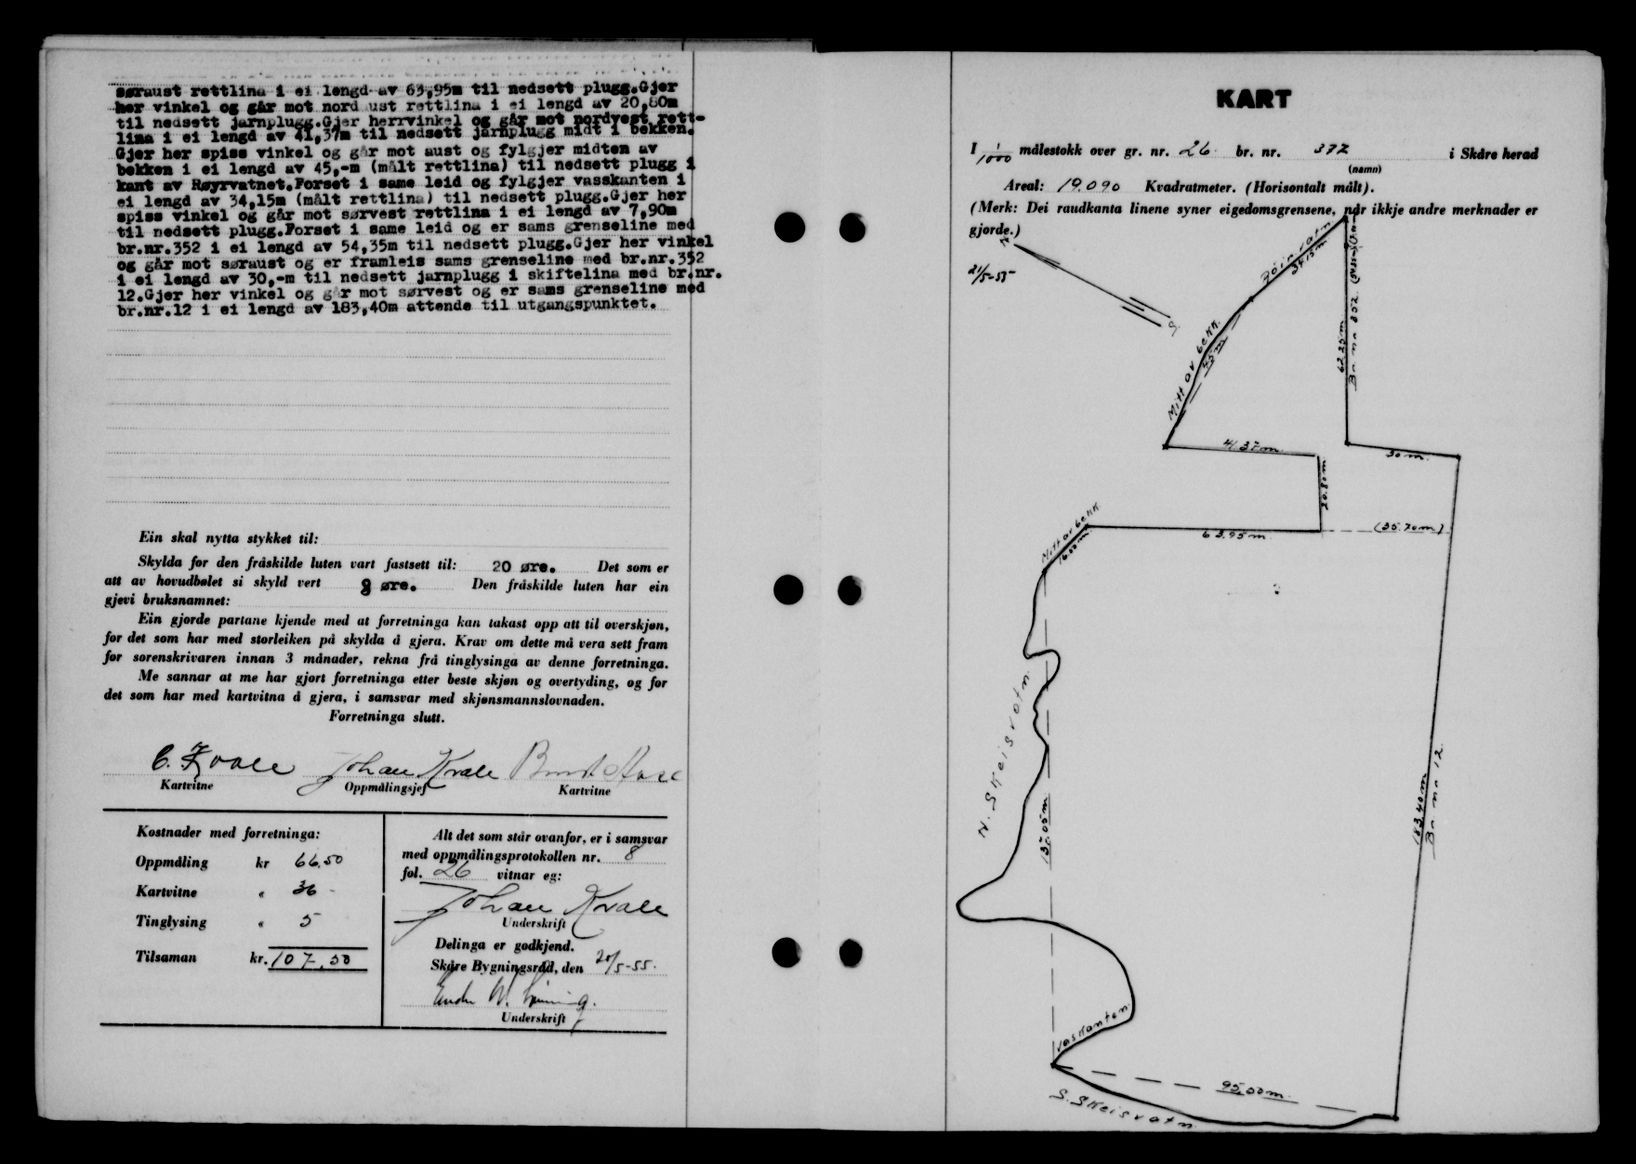 søraust rettlina i ei lengd av 63,95m til nedsett plugg.Gjer
her vinkel og går mot nord ust rettlina i ei lengd av 20,80m
til nedsett jarnplugg.Gjer herrvinkel og går mot nordvest rett-
lina i ei lengd av 41,37m til nedsett jarnplugg midt i bekken.
Gjer her spiss vinkel og går mot aust og fylgjer midten av
bekken i ei lengd av 45,-m (målt rettlina) til nedsett plugg i
kant av Røyrvatnet.Forset i same leid og fylgjer vasskanten i
ei lengd av 34,15m (målt rettlina) til nedsett plugg.Gjer her
spiss vinkel og går mot sørvest rettlina i ei lengd av 7,90m
til nedsett plugg.Forset i same leid og er sams grenseline med
br.nr.352 i ei lengd av 54,35m til nedsett plugg.Gjer her vinkel
og går mot søraust og er framleis sams grenseline med br.nr.352
i ei lengd av 30,-m til nedsett jarnplugg i skiftelina med br.nr.
12.Gjer her vinkel og går mot sørvest og er sams grenseline med
br.nr.12 i ei lengd av 183,40m attende til utgangspunktet.
Ein skal nytta stykket til:
Skylda for den fråskilde luten vart fastsett til: 20 øre. Det som er
att av hovudbølet si skyld vert 9 øre. Den fråskilde luten har ein
gjevi bruksnamnet:
Ein gjorde partane kjende med at forretninga kan takast opp att til overskjøn,
for det som har med storleiken på skylda å gjera. Krav om dette må vera sett fram
for sorenskrivaren innan 3 månader, rekna frå tinglysinga av denne forretninga.
Me sannar at me har gjort forretninga etter beste skjøn og overtyding, og for
det som har med kartvitna å gjera, i samsvar med skjønsmannslovnaden.
Forretninga slutt.
Johan Kvale
Kartvitne Oppmålingsjef Kartvitne
Kostnader med forretninga:
Oppmåling kr 66.50
Kartvitne " 36 -
Tinglysing " 5
Tilsaman kr. 107.50
Alt det som står ovanfor, er i samsvar
med oppmålingsprotokollen nr. 8
fol. 26 vitnar eg:
Johan Kvale
Underskrift
Delinga er godkjend.
Skåre Bygningsråd, den 20/5-55.
Underskrift
KART
I 1/1000 målestokk over gr. nr. 26 br. nr. 372 i Skåre herad
(namn)
Areal: 19.090 Kvadratmeter. (Horisontalt målt).
(Merk: Dei raudkanta linene syner eigedomsgrensene, når ikkje andre merknader er
gjorde.)
21/5-55
N
S
Röirvatn
34.15m
Mitt av bekk.
45 m
62.25m
Br. nr 352
41.37m
30 m.
20.80m
(35.70m)
63.95m
Mitt av bekk
N. Skeisvatn
137.05m
183.40m
Br nr 12
Vaskanten
95.50m
S. Skeisvatn